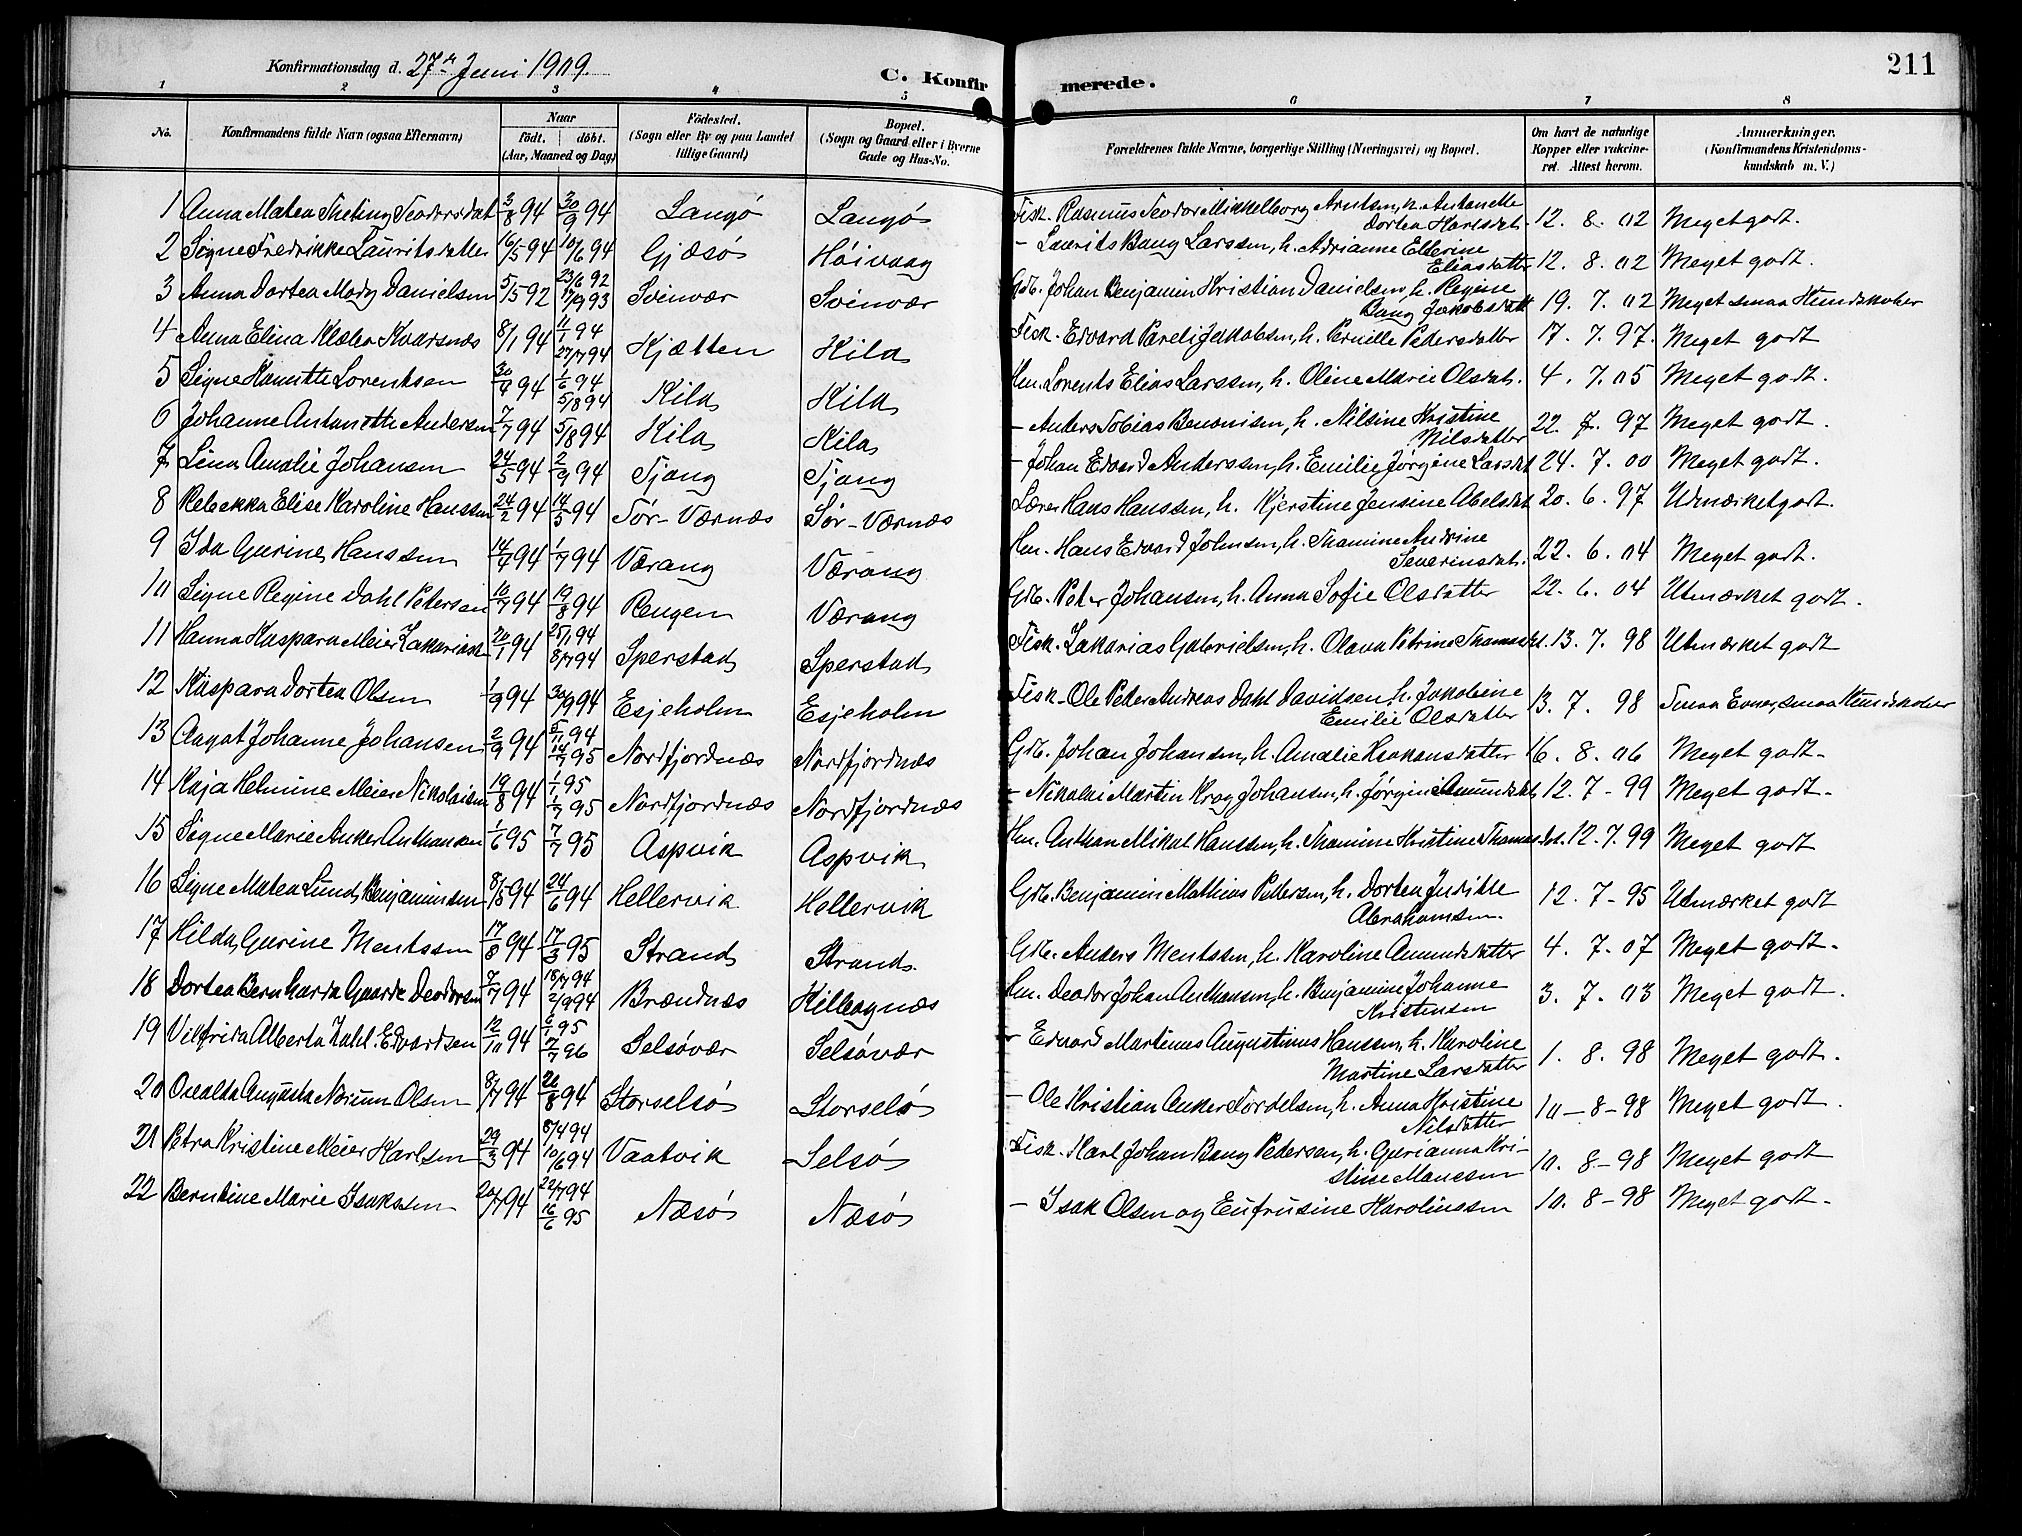 211
Konfirmationsdag d. 27de Juni 1909.
C. Konfirmerede.
1 2 3 4 5 6 7 8
No. Konfirmandens fulde Navn (ogsaa Efternavn) Naar födt. döbt. (Aar, Maaned og Dag) Födested. (Sogn eller By og paa Landet tillige Gaard) Bopæl. (Sogn og Gaard eller i Byerne Gade og Hus-No. Forældrenes fulde Navne, borgerlige Stilling (Næringsvei) og Bopæl. Om havt de naturlige Kopper eller vakcineret. Attest herom. Anmærkninger. (Konfirmandens Kristendomskundskab m. V.)
1 Anna Matea Theting Teodorsdat 3/8 94 30/9 94 Langö Langö Fisk. Rasmus Teodor Mikkelborg Arntsen, h. Antonette
Dortea Karlsdat. 12. 8. 02 Meget godt.
2 Signe Fredrikke Lauritsdatter 16/5 94 10/6 94 Gjæsö Höivaag - Laurits Bang Larssen, h. Adrianne Ellerine
Eliasdatter 12. 8. 02 Meget godt.
3 Anna Dortea Mody Danielsen 5/5 92 23/6 92 17/9 93 Svinvær Svinvær Gdb. Johan Benjamin Kristian Danielsen, h. Regine
Bang Jakobsdatt 19. 7. 02 Meget smaa Kundskaber
4 Anna Elina Klæbo Kvarsnæs 8/1 94 11/1 94 27/7 94 Kjætten Kila Fisk. Edvard Pareli Jakobsen, h. Pernille Pedersdatter 17. 7. 97. Meget godt
5 Signe Hanette Lorentsen 30/4 94 1/6 94 5/8 94 Kila Kila Hm. Lorents Elias Larssen, h. Oline Marie Olsdat. 4. 7. 05 Meget godt.
6 Johanne Antonette Andersen 7/7 94 5/8 94 Kila Kila - Anders Tobias Benonisen, h. Nilsine Kristine
Nilsdatter 22. 7. 97 Meget godt.
7 Lina Amalie Johansen 24/5 94 2/9 94 Tjong Tjong - Johan Edvard Anderssen, h. Emilie Jørgine Larsdat 24. 7. 00 Meget godt.
8 Rebekka Elise Karoline Hanssen 24/2 94 14/5 94 Sör-Værnæs Sör-Værnæs Lærer Hans Hanssen, h. Kjerstine Jensine Abelsdat 20. 6. 97 Udmærket godt.
9 Ida Gurine Hanssen 14/4 94 1/7 94 Værang Værang Hm. Hans Edvard Johnsen, h. Thamine Andrine
Severinsdat. 22. 6. 04 Meget godt.
10 Signe Regine Dahl Petersen 10/7 94 19/8 94 Rengen Værang Gdb. Peter Johansen, h. Anna Sofie Olsdatter 22. 6. 04 Utmærket godt.
11 Hanna Kaspara Meier Zakariasen 20/1 94 25/1 94 8/7 94 Sperstad Sperstad Fisk. Zakarias Gabrielsen, h. Olava Petrine Thomasdat. 13. 7. 98 Utmærket godt
12 Kaspara Dortea Olsen 1/9 94 30/9 94 Esjeholm Esjeholm Fisk. Ole Peder Andreas Dahl Davidsen, h. Jakobine
Emilie Olsdatter 13. 7. 98 Smaa Evner, smaa Kundskaber
13 Aagot Johanne Johansen 2/9 94 5/11 94 14/7 95 Nordfjordnæs Nordfjordnæs Gdb. Johan Johansen, h. Amalie Haakonsdatter 16. 8. 06 Meget godt.
14 Kaja Helmine Meier Nikolaisen 19/8 94 1/1 95 1/7 95 Nordfjordnæs Nordfjordnæs - Nikolai Martin Krog Johansen, h. Jørgine Amundsdat 12. 7 - 99 Meget godt.
15 Signe Marie Anker Anthonsen 1/6 95 7/7 95 Aspvik Aspvik Hm. Anthon Mikal Hanssen, h. Thamine Kristine Thomasdat. 12. 7. 99 Meget godt
16 Signe Matea Lund Benjaminsen 8/5 94 24/6 94 Hellervik Hellervik Gdb. Benjamin Mathias Pettersen, h. Dortea Judithe
Abrahamsen. 12. 7 - 95 Utmærket godt
17 Hilda Gurine Mentssen 17/8 94 17/3 95 Strand Strand. Gdb. Anders Mentssen, h. Karoline Amundsdatter 4. 7. 07 Meget godt.
18 Dortea Bernharda Gaarde Deodorsen 7/7 94 18/7 94 2/9 94 Brændnæs Kilbognæs Hm. Deodor Johan Anthonsen, h. Benjamine Johanne
Kristensen 3. 7. 03 Meget godt.
19 Vilfrida Alberta Zahl Edvardsen 12/10 94 6/1 95 7/7 96 Selsövær Selsövær - Edvard Martinus Augustinus Hanssen, h. Karoline
Martine Larsdatter 1. 8. 98 Meget godt.
20 Osvalda Augusta Norum Olsen 8/7 94 26/8 94 Storselsö Storselsö - Ole Kristian Anker Tordelsen, h. Anna Kristine
Nilsdatter 10 - 8 - 98 Meget godt.
21 Petra Kristine Meier Karlsen 29/3 94 8/4 94 10/6 94 Vaatvik Selsö Fisk. Karl Johan Bang Pedersen, h. Gurianna Kri-
stine Monessen 10. 8 - 98 Meget godt
22 Berntine Marie Isakssen 20/7 94 22/7 94 16/6 95 Næsö Næsö - Isak Olsen og Eufrusine Karolinssen 10. 8 - 98 Meget godt.